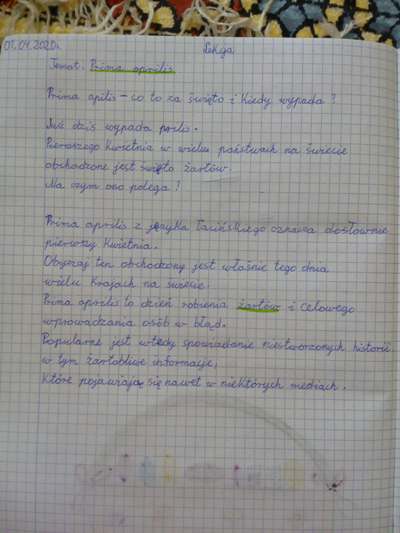 01.04.2020r. Lekcja
Temat: Prima aprilis
Prima apilis - co to za święto i kiedy wypada?
Już dziś wypada
Pierwszego kwietnia w wielu państwach na świecie
obchodzone jest święto żartów.
Na czym ono polega?
Prima aprilis z języka łacińskiego oznacza dosłownie
pierwszy kwietnia.
Obyczaj ten obchodzony jest właśnie tego dnia
wielu krajach na świecie.
Prima aprilis to dzień robienia żartów i celowego
wprowadzania osób w błąd.
Popularne jest wtedy opowiadanie niestworzonych historii
w tym żartobliwe informacje,
które pojawiają się nawet w niektórych mediach.